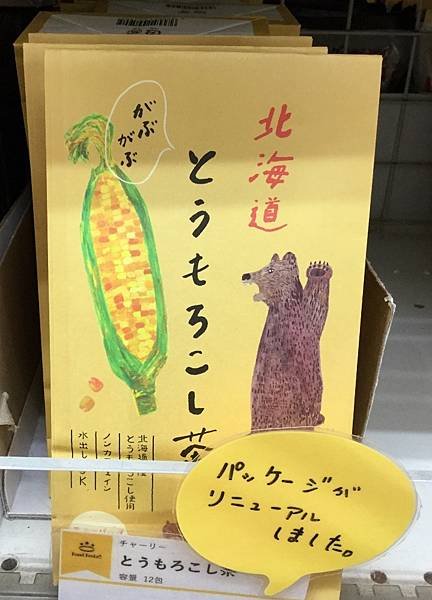 がぶ
がぶ
北海道
とうもろこし茶
北海道産
とうもろこし使用
ノンカフェイン
水出しOK
パッケージが
リニューアル
しました。
チャーリー
とうもろこし茶
容量 12包